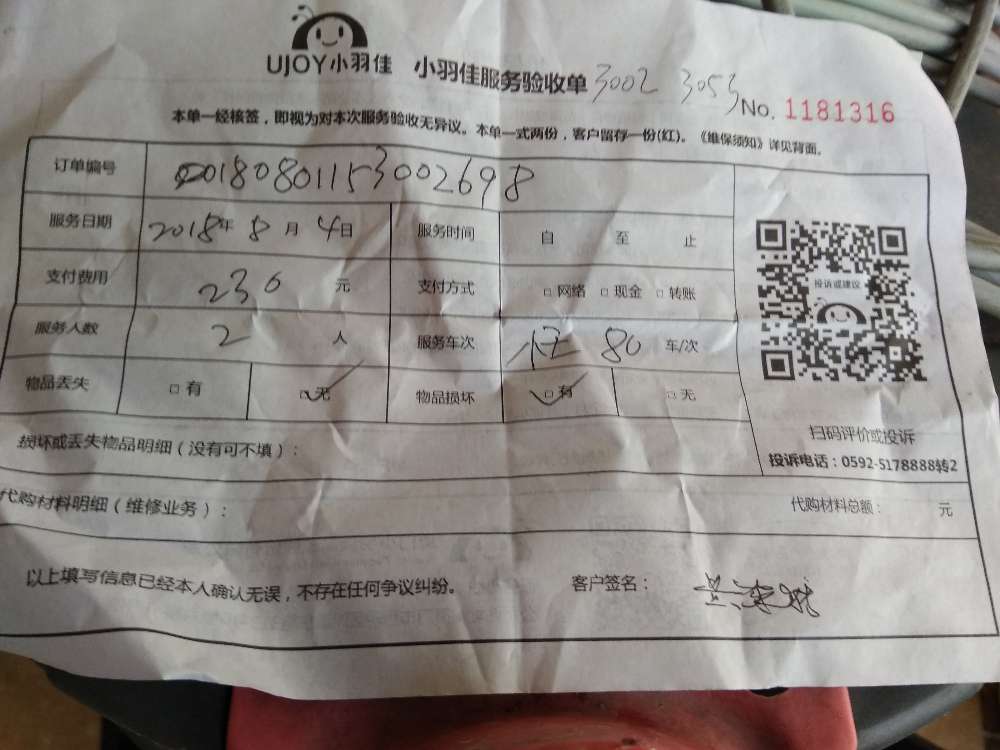 UJOY小羽佳 小羽佳服务验收单 3002 3053 No. 1181316
本单一经核签，即视为对本次服务验收无异议。本单一式两份，客户留存一份(红)。《维保须知》详见背面。
订单编号 20180801153002698
服务日期 2018年 8 月 4日 服务时间 自 至 止
支付费用 230 元 支付方式 □ 网络 □ 现金 □ 转账
投诉或建议
服务人数 2 人 服务车次 80 车/次
物品丢失 □ 有 ☑ 无 物品损坏 ☑ 有 □ 无
扫码评价或投诉
损坏或丢失物品明细（没有可不填）：
投诉电话：0592-5178888转2
代购材料明细（维修业务）： 代购材料总额： 元
以上填写信息已经本人确认无误，不存在任何争议纠纷。 客户签名：